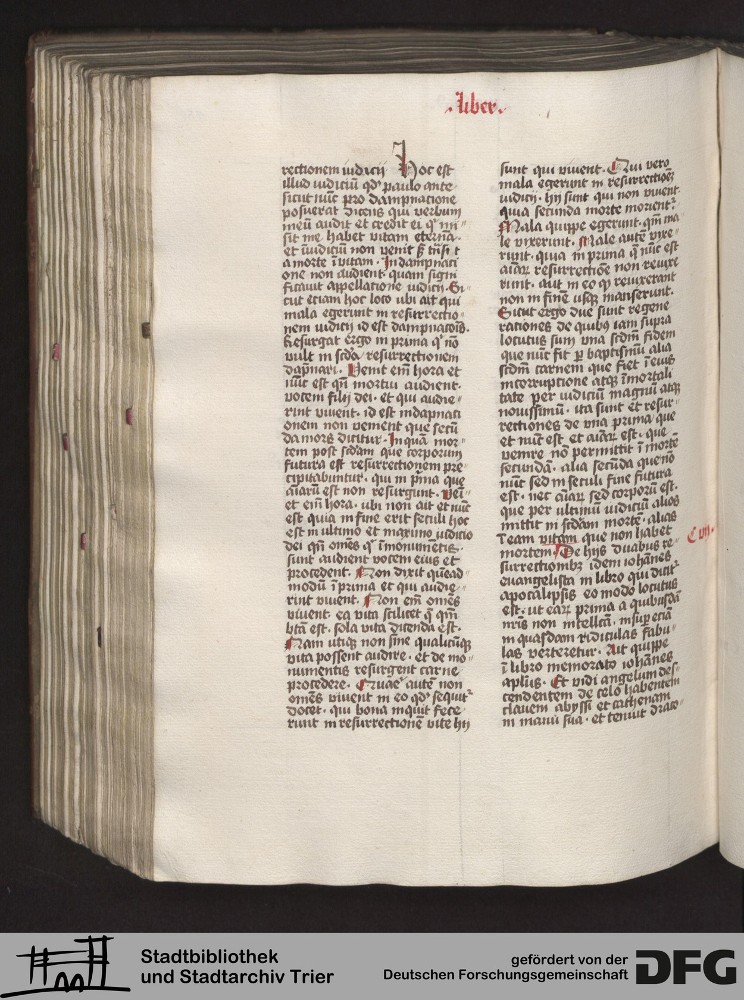 .Liber.
rectionem iudicii Hoc est
illud iudiciu qd' paulo ante
sicut nūc pro dampnatione
posuerat dicens qui verbum
meū audit et credit ei q' mi
sit me habet vitam eternā.
et ī iudiciū non venit s; tnsi t
a morte ī vitam. In dampnati
one non audient. quam signi
ficauit appellatione iudicii. Si
cut etiam hoc loco ubi ait qui
mala egerunt in resurrectio
nem iudicii id est dampnatōis.
Resurgat ergo in prima q' nō
vult in scd'a resurrectionem
dāpnari. Venit em̄ hora et
nūc est qn̄ mortui audient
vocem filij dei. et qui audie
rint viuent. id est in dapnati
onem non venient que secū
da mors dicitur. In quā mor
tem post scdam que corporum
futura est resurrectionem pre
cipitabuntur. qui in p̄ma que
aīarū est non resurgunt. Veīt
et em̄ hora. ubi non ait et nūc
est quia in fine erit seculi hoc
est in ultimo et maximo iudicio
dei qn̄ om̄es q' ī monumētis.
sunt audient vocem eius et
procedent. Non dixit quēad
modū ī prima et qui audie
rint viuent. Non em̄ om̄es
viuent. ea vita scilicet q' qm̄
btā est. sola vita dicenda est.
Nam utiq; non sine qualicūq;
vita possent audire. et de mo
numentis resurgent carne
procedere. Cur aute non
om̄es viuent in eo qd' sequit'
docet. qui bona inquit fece
runt in resurrectionē vite hij
sunt qui viuent. Qui vero
mala egerunt in resurrectioēz
iudicij. hij sunt qui non viuent
quia secunda morte morient'.
Mala quippe egerunt. qm̄ ma
le vixerunt. Male autē vixe
runt. quia in prima q' nūc est
aīar; resurrectiōe non reuixe
runt. aut in eo q' reuixerant
non in finē usq; manserunt.
Sicut ergo due sunt regene
rationes de quibus iam supra
locutus sum vna scdm̄ fidem
que nūc fit p baptismū alia
scdm̄ carnem que fiet ī eius
incorruptione atq; īmortali
tate per iudiciū magnū atq;
nouissimū. ita sunt et resur
rectiones due vna prima que
et nūc est et aīar; est. que
venire nō permittit ī mortē
secundā. alia secūda que nō
nūc sed in seculi fine futura
est. nec aīar; sed corporū est.
que per ultimū iudiciū alios
mittit in scdam mortē. alios
ī eam vitam que non habet
mortem. De hijs duabus re
C vii.
surrectionibz idem iohānes
euangelista in libro qui dicit'
apocalipsis eo modo locutus
est. ut ear; prima a quibusdā
nr̄is non intellcā. insup etiā
in quasdam ridiculas fabu
las verteretur. Ait quippe
ī libro memorato iohānes
apl'us. Et vidi angelum des
cendentem de celo habentem
clauem abyssi et cathenam
in manu sua. et tenuit draco
Stadtbibliothek
und Stadtarchiv Trier
gefördert von der
Deutschen Forschungsgemeinschaft
DFG